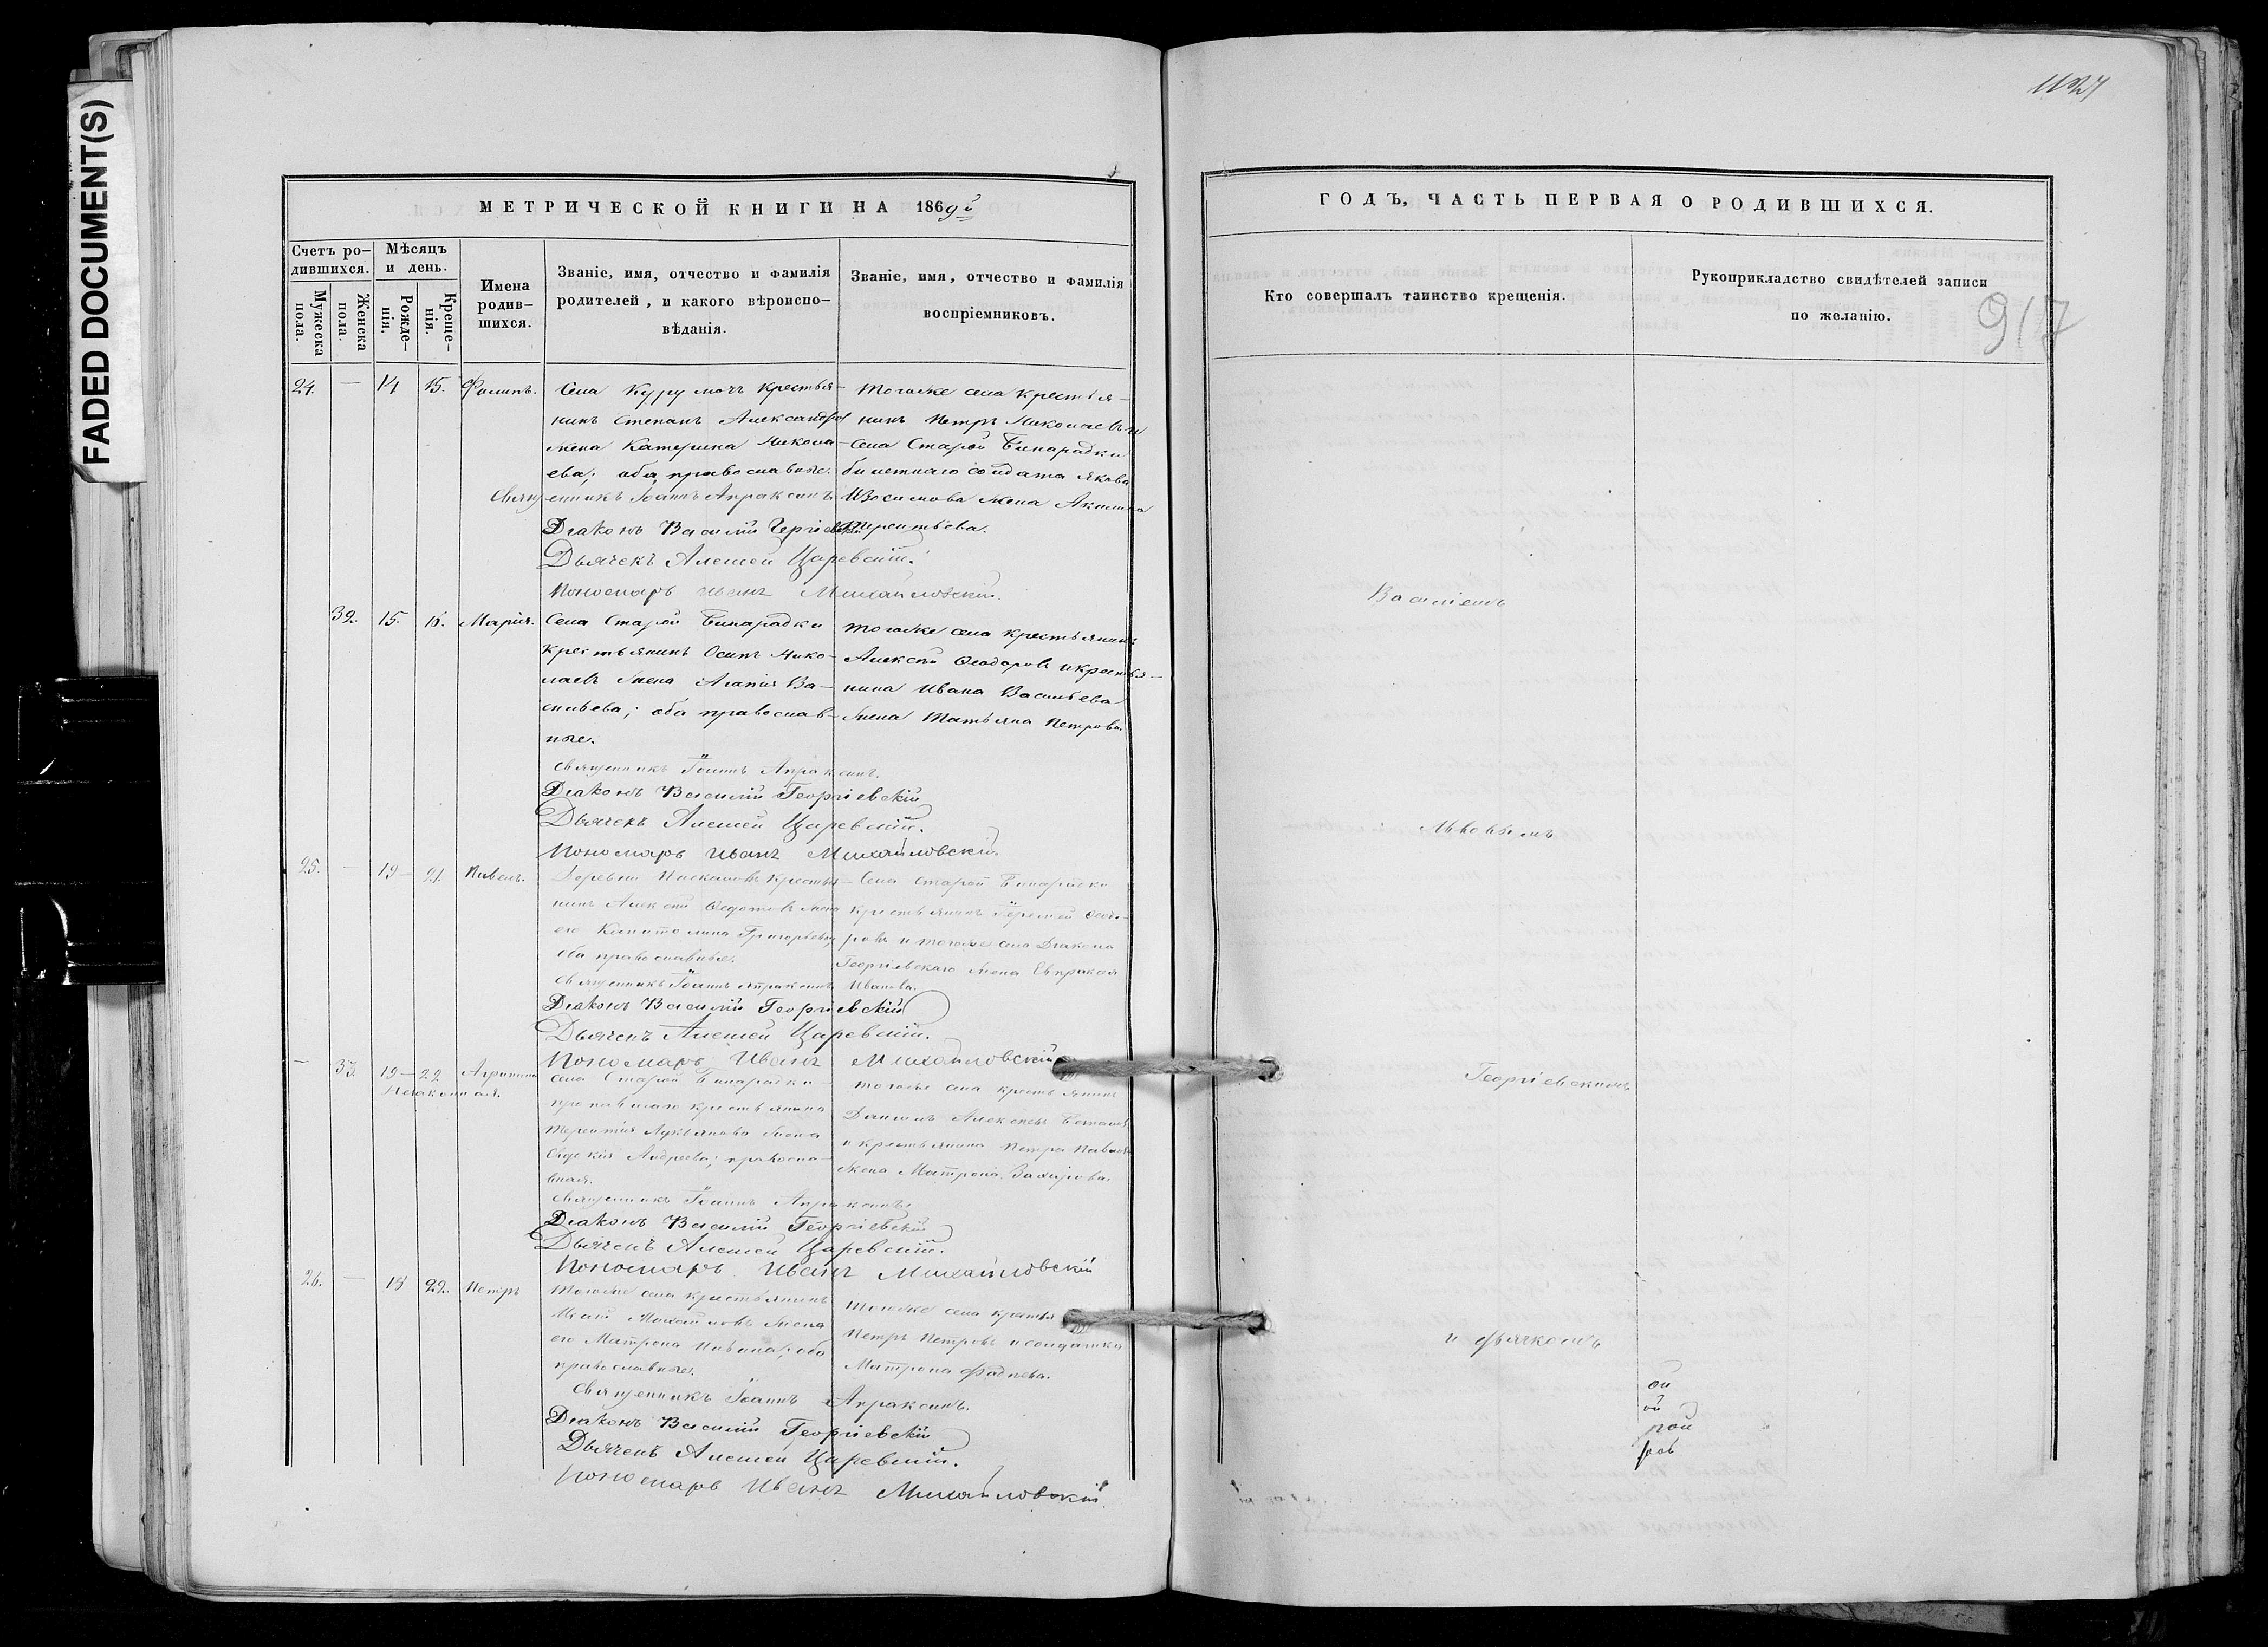 FADED DOCUMENT(S)
917
МЕТРИЧЕСКОЙ КНИГИ НА 1869й
Счетъ ро-
дившихся.
Мужеска
пола.
Женска
пола.
Мѣсяцъ
и день.
Рожде-
нія.
Креще-
нія.
Имена
родив-
шихся.
Званіе, имя, отчество и фамилія
родителей, и какого вѣроиспо-
вѣданія.
Званіе, имя, отчество и фамилія
воспріемниковъ.
24. — 14 15. Филипъ.
Села Курумочъ крестья-
нинъ Степанъ Александров
жена Катерина Никола-
ева; оба православные.
Священникъ Іоаннъ Апраксинъ
Діаконъ Василій Георгіевскій
Дьячекъ Алексей Царевскій.
Пономарь Иванъ Михайловскій.
Тогоже села крестья-
нинъ Петръ Николаевъ и
Села Старой Бинарадки
билетнаго солдата Якова
жена Акилина
Терентьева.
32. 15. 16. Марія.
Села Старой Бинарадки
крестьянинъ Осипъ Нико-
лаевъ жена Агапія Ва-
сильева; оба православ-
ные.
Священникъ Іоаннъ Апраксинъ.
Діаконъ Василій Георгіевскій
Дьячекъ Алексей Царевскій.
Пономарь Иванъ Михайловскій.
тогоже села крестьянинъ
Алексѣй Ѳеодоровъ и крестья-
нина Ивана Васильева
жена Татьяна Петрова.
25. — 19 — 21. Павелъ.
Деревни крестья-
нинъ Алексѣй Ѳедотовъ жена
его Капитолина Григорьева
оба православные.
Священникъ Іоаннъ Апраксинъ
Діаконъ Василій Георгіевскій
Дьячекъ Алексей Царевскій.
Пономарь Иванъ Михайловскій
Села Старой Бинарадки
крестьянинъ Ѳеодо-
ровъ и тогоже села Діакона
Георгіевскаго жена Евпраксія
Иванова.
— 33. 19 — 22 Агрипина
Незаконная.
села Старой Бинарадки
крестьянина
Терентія Лукьянова жена
Андреева; правосла-
вная.
Священникъ Іоаннъ Апраксинъ.
Діаконъ Василій Георгіевскій
Дьячекъ Алексей Царевскій.
Пономарь Иванъ Михайловскій
тогоже села крестьянинъ
Даніилъ Алексеевъ
и крестьянина Петра Павлова
жена Матрона Захарова.
26. — 18 22. Петръ
Тогоже села крестьянинъ
Михайловъ жена
его Матрона; оба
православные.
Священникъ Іоаннъ Апраксинъ.
Діаконъ Василій Георгіевскій
Дьячекъ Алексей Царевскій.
Пономарь Иванъ Михайловскій.
Тогоже села крестья
Петръ Петровъ и солдатка
Матрона Фадеева.
ГОДЪ, ЧАСТЬ ПЕРВАЯ О РОДИВШИХСЯ.
Кто совершалъ таинство крещенія.
Рукоприкладство свидѣтелей записи
по желанію.
Василіемъ
Георгіевскимъ
и дьячкомъ
ой
рой